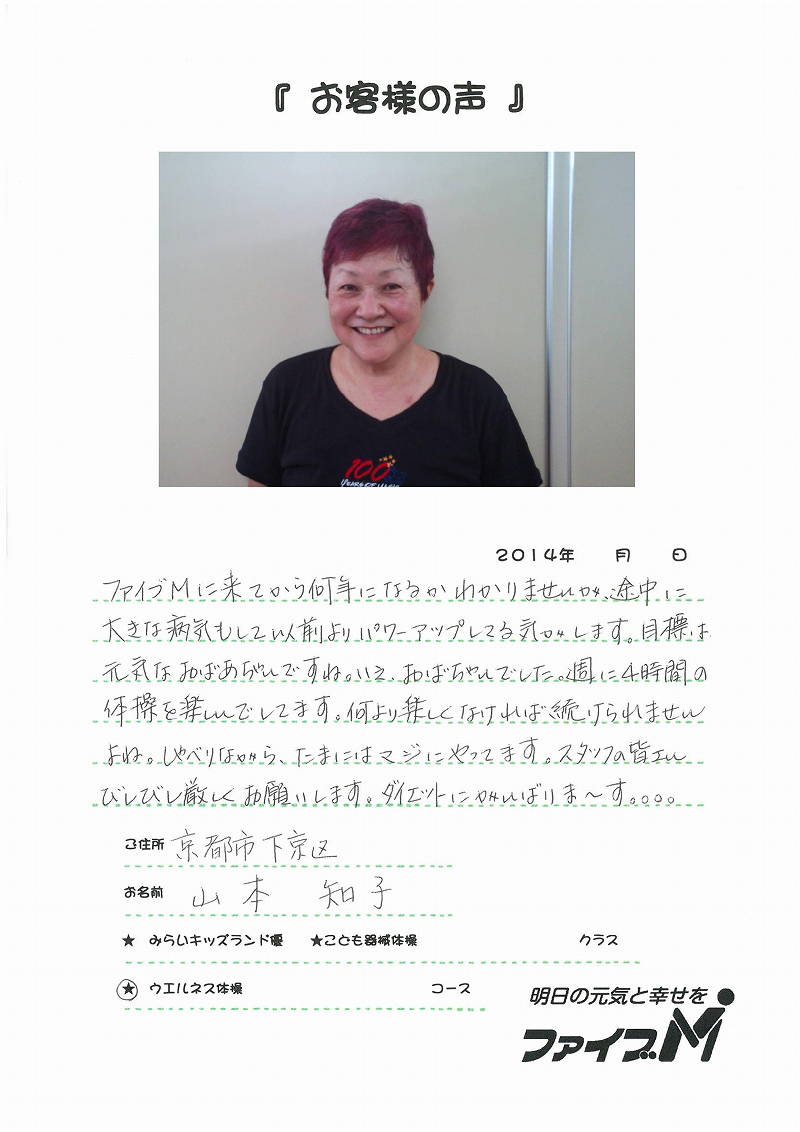 『 お客様の声 』
100
YEARS OF MAGIC
2014年 月 日
ファイブMに来てから何年になるかわかりませんが、途中に
大きな病気もして以前よりパワーアップしてる気がします。目標は
元気なおばあちゃんですね。いえ、おばちゃんでした。週に4時間の
体操を楽しんでしてます。何より楽しくなければ続けられません
よね。しゃべりながら、たまにはマジにやってます。スタッフの皆さん
びしびし厳しくお願いします。ダイエットにがんばりま〜す。。。。
ご住所 京都市下京区
お名前 山本 知子
★ みらいキッズランド優 ★こども器械体操 クラス
★ ウエルネス体操 コース
明日の元気と幸せを
ファイブM